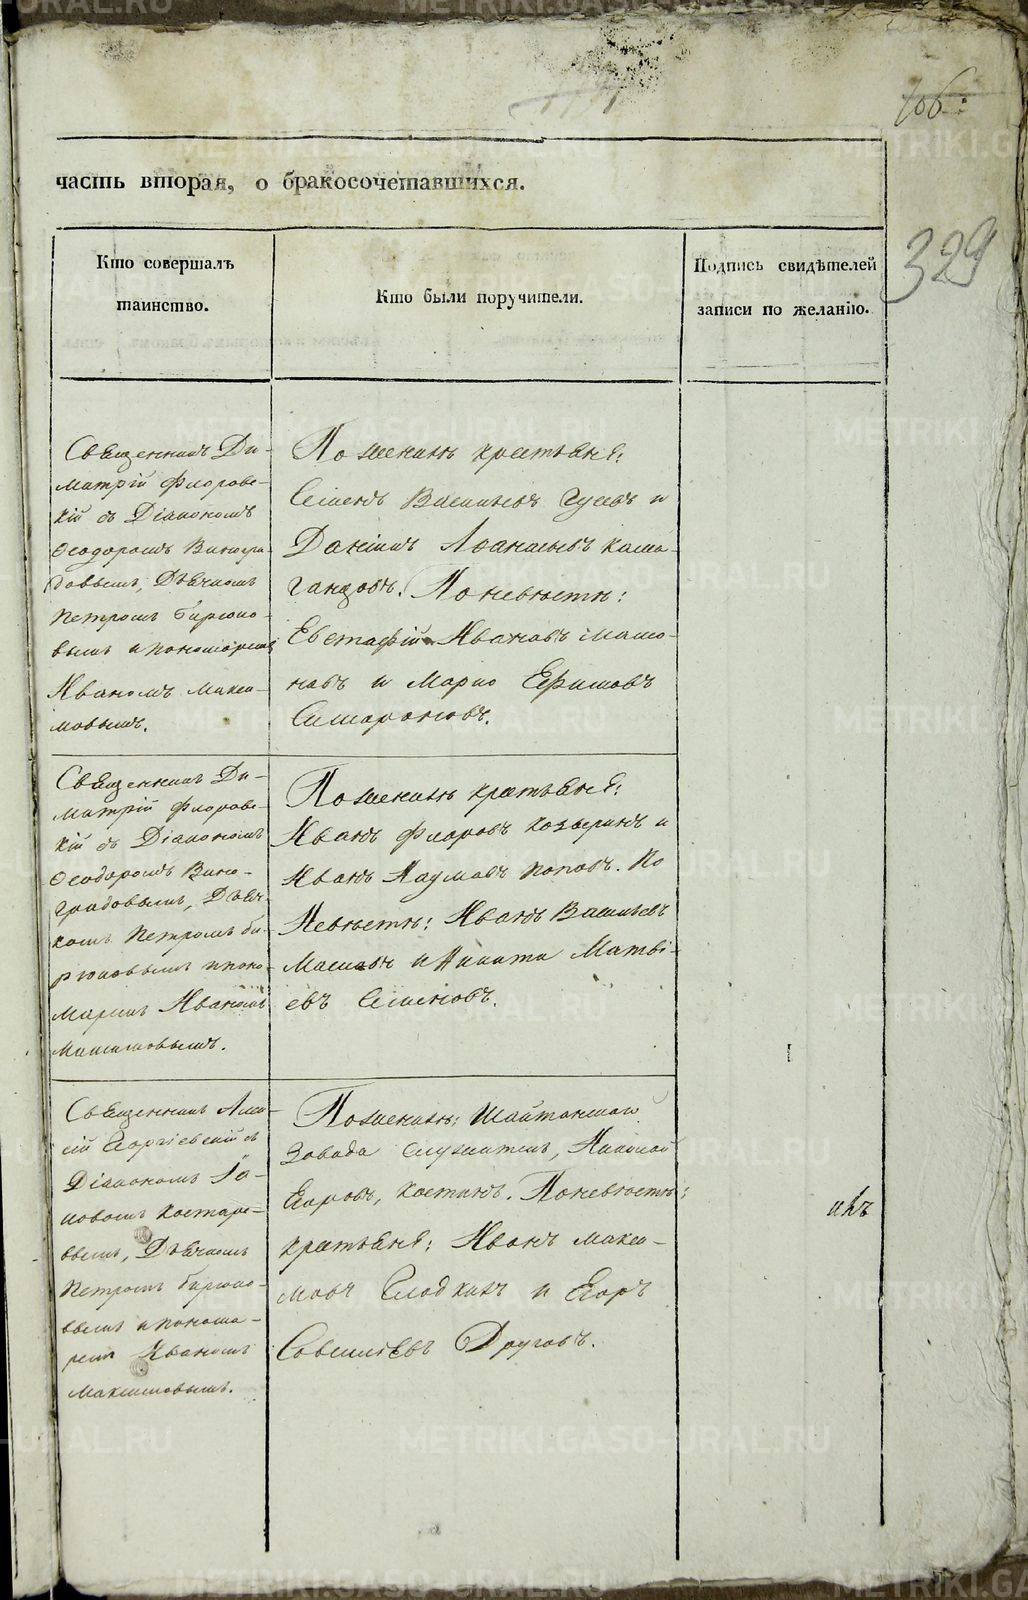 106.
329
часть вторая, о бракосочетавшихся.
Кто совершалъ
таинство.
Кто были поручители.
Подпись свидѣтелей
записи по желанію.
Священникъ Ди-
митрій Флоровс-
кій съ Діакономъ
Ѳеодоромъ Виногра-
довымъ, Дьячкомъ
Петромъ Бирюко-
вымъ и пономаремъ
Иваномъ Макси-
мовымъ.
По женихѣ крестьяне:
Семенъ Васильевъ Гусевъ и
Данiилъ Аѳанасьевъ
По невѣстѣ:
Евстафій Ивановъ
и Марко Ефимовъ
Священникъ Ди-
митрій Флоровс-
кій съ Діакономъ
Ѳеодоромъ Вино-
градовымъ, Дьяч-
комъ Петромъ Би-
рюковымъ и поно-
маремъ Иваномъ
Максимовымъ.
По женихѣ крестьяне:
Иванъ Флоровъ и
Иванъ Наумовъ Поповъ. По
Невѣстѣ: Иванъ Васильевъ
Масловъ и Никита Матвѣ-
евъ Семеновъ.
Священникъ Алек-
сій Георгіевскій съ
Діакономъ Іа-
ковомъ Костаре-
вымъ, Дьячкомъ
Петромъ Бирюко-
вымъ и понома-
ремъ Иваномъ
Максимовымъ.
По женихѣ: Шайтанскаго
Завода служитель, Николай
Егоровъ, Костинъ. По невѣстѣ:
крестьяне: Иванъ Макси-
мовъ Гладкихъ и Егоръ
Савельевъ Друговъ.
ихъ
METRIKI.GASO-URAL.RU